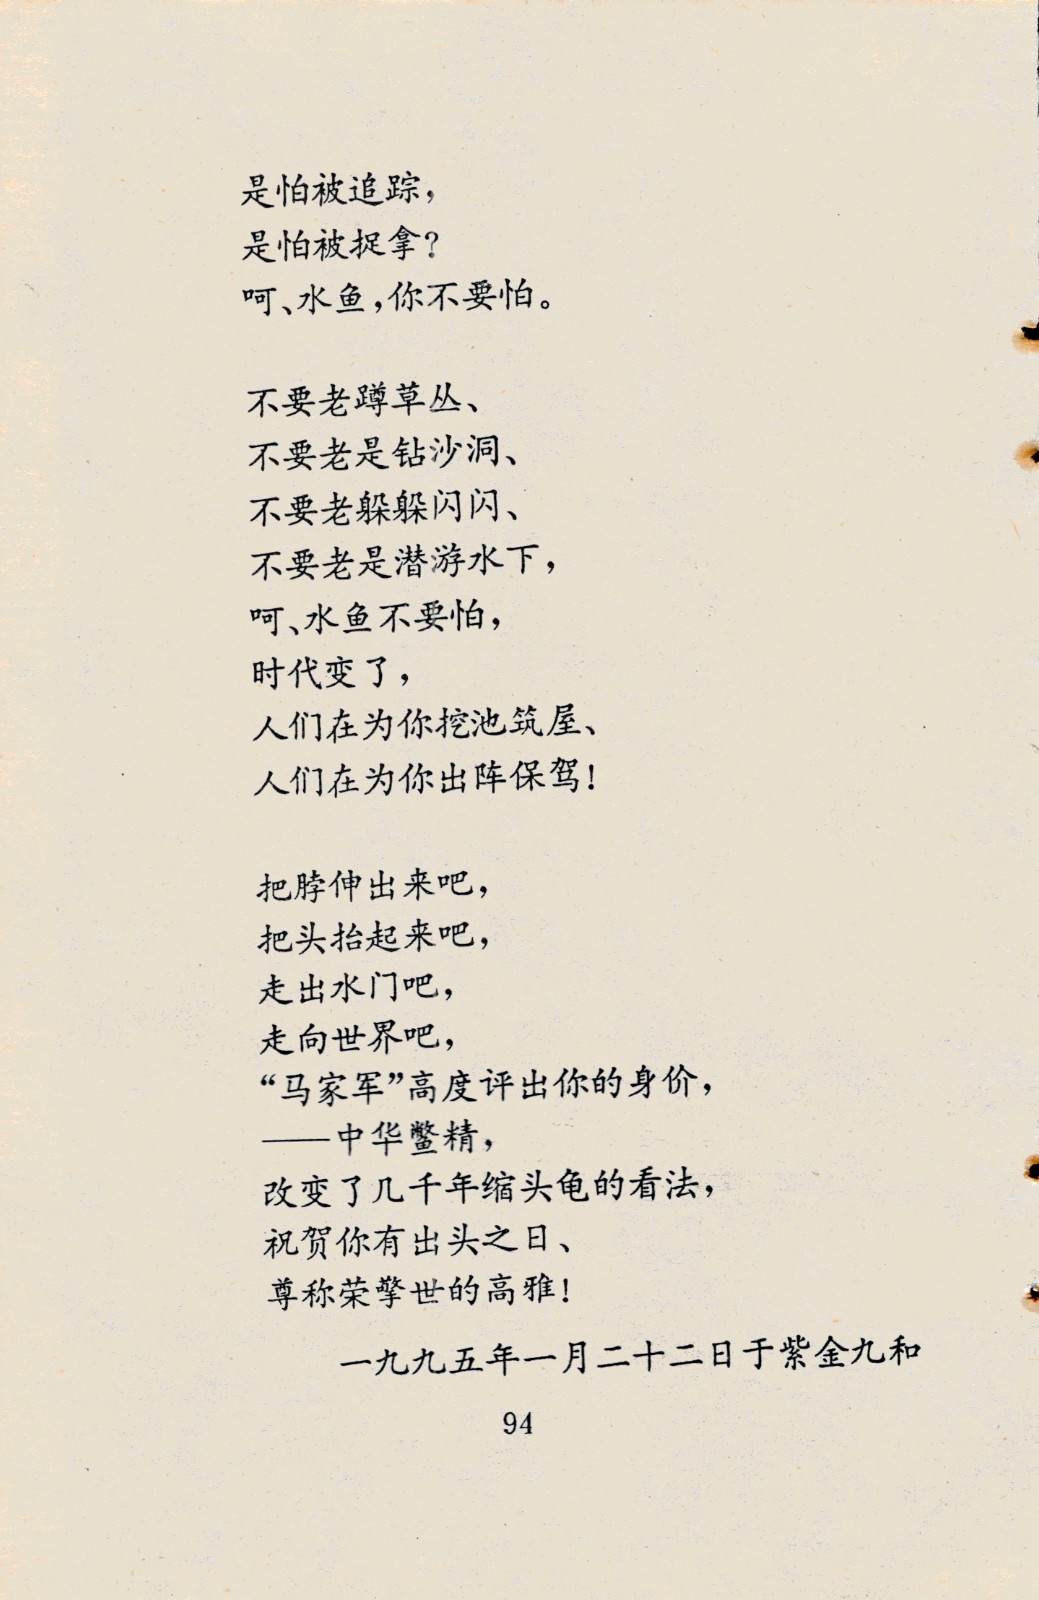 是怕被追踪，
是怕被捉拿？
呵、水鱼，你不要怕。
不要老蹲草丛、
不要老是钻沙洞、
不要老躲躲闪闪、
不要老是潜游水下，
呵、水鱼不要怕，
时代变了，
人们在为你挖池筑屋、
人们在为你出阵保驾！
把脖伸出来吧，
把头抬起来吧，
走出水门吧，
走向世界吧，
“马家军”高度评出你的身价，
——中华鳖精，
改变了几千年缩头龟的看法，
祝贺你有出头之日、
尊称荣擎世的高雅！
一九九五年一月二十二日于紫金九和
94